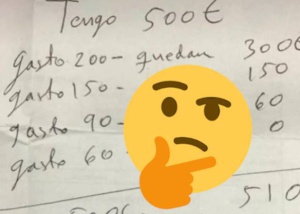 Tengo 500€
gasto 200 - quedan 300€
gasto 150 - 150
gasto 90 - 60
gasto 60 0
510